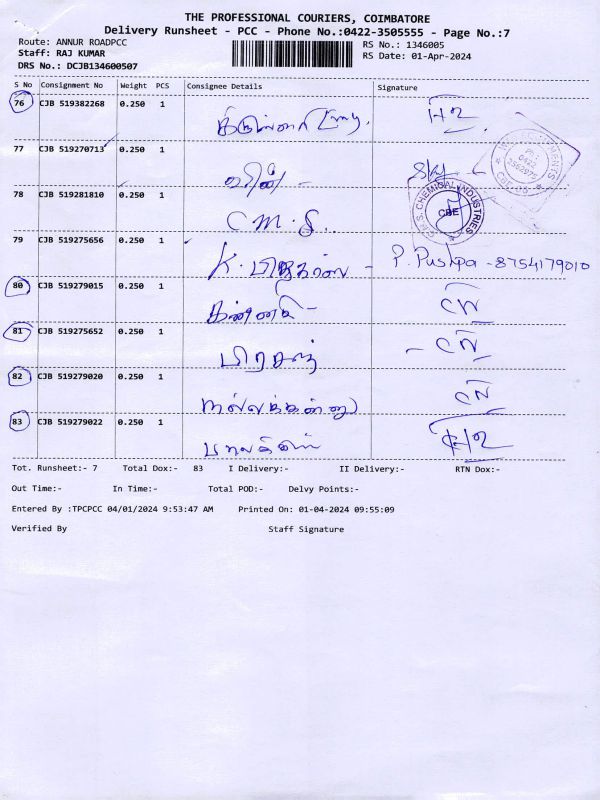 THE PROFESSIONAL COURIERS, COIMBATORE
Delivery Runsheet - PCC - Phone No.:0422-3505555 - Page No.:7
Route: ANNUR ROADPCC
RS No.: 1346005
Staff: RAJ KUMAR
RS Date: 01-Apr-2024
DRS No.: DCJB134600507
S No Consignment No Weight PCS Consignee Details Signature
76 CJB 519382268 0.250 1
77 CJB 519270713 0.250 1
78 CJB 519281810 0.250 1 C M. S. C.M.S. CHEMICAL INDUSTRIES CBE
79 CJB 519275656 0.250 1 K. P. Pushpa - 8754179010
80 CJB 519279015 0.250 1 கண்ணகி - CN
81 CJB 519275652 0.250 1 பிரசாந் - CN
82 CJB 519279020 0.250 1 CN
83 CJB 519279022 0.250 1
Tot. Runsheet:- 7 Total Dox:- 83 I Delivery:- II Delivery:- RTN Dox:-
Out Time:- In Time:- Total POD:- Delvy Points:-
Entered By :TPCPCC 04/01/2024 9:53:47 AM Printed On: 01-04-2024 09:55:09
Verified By Staff Signature